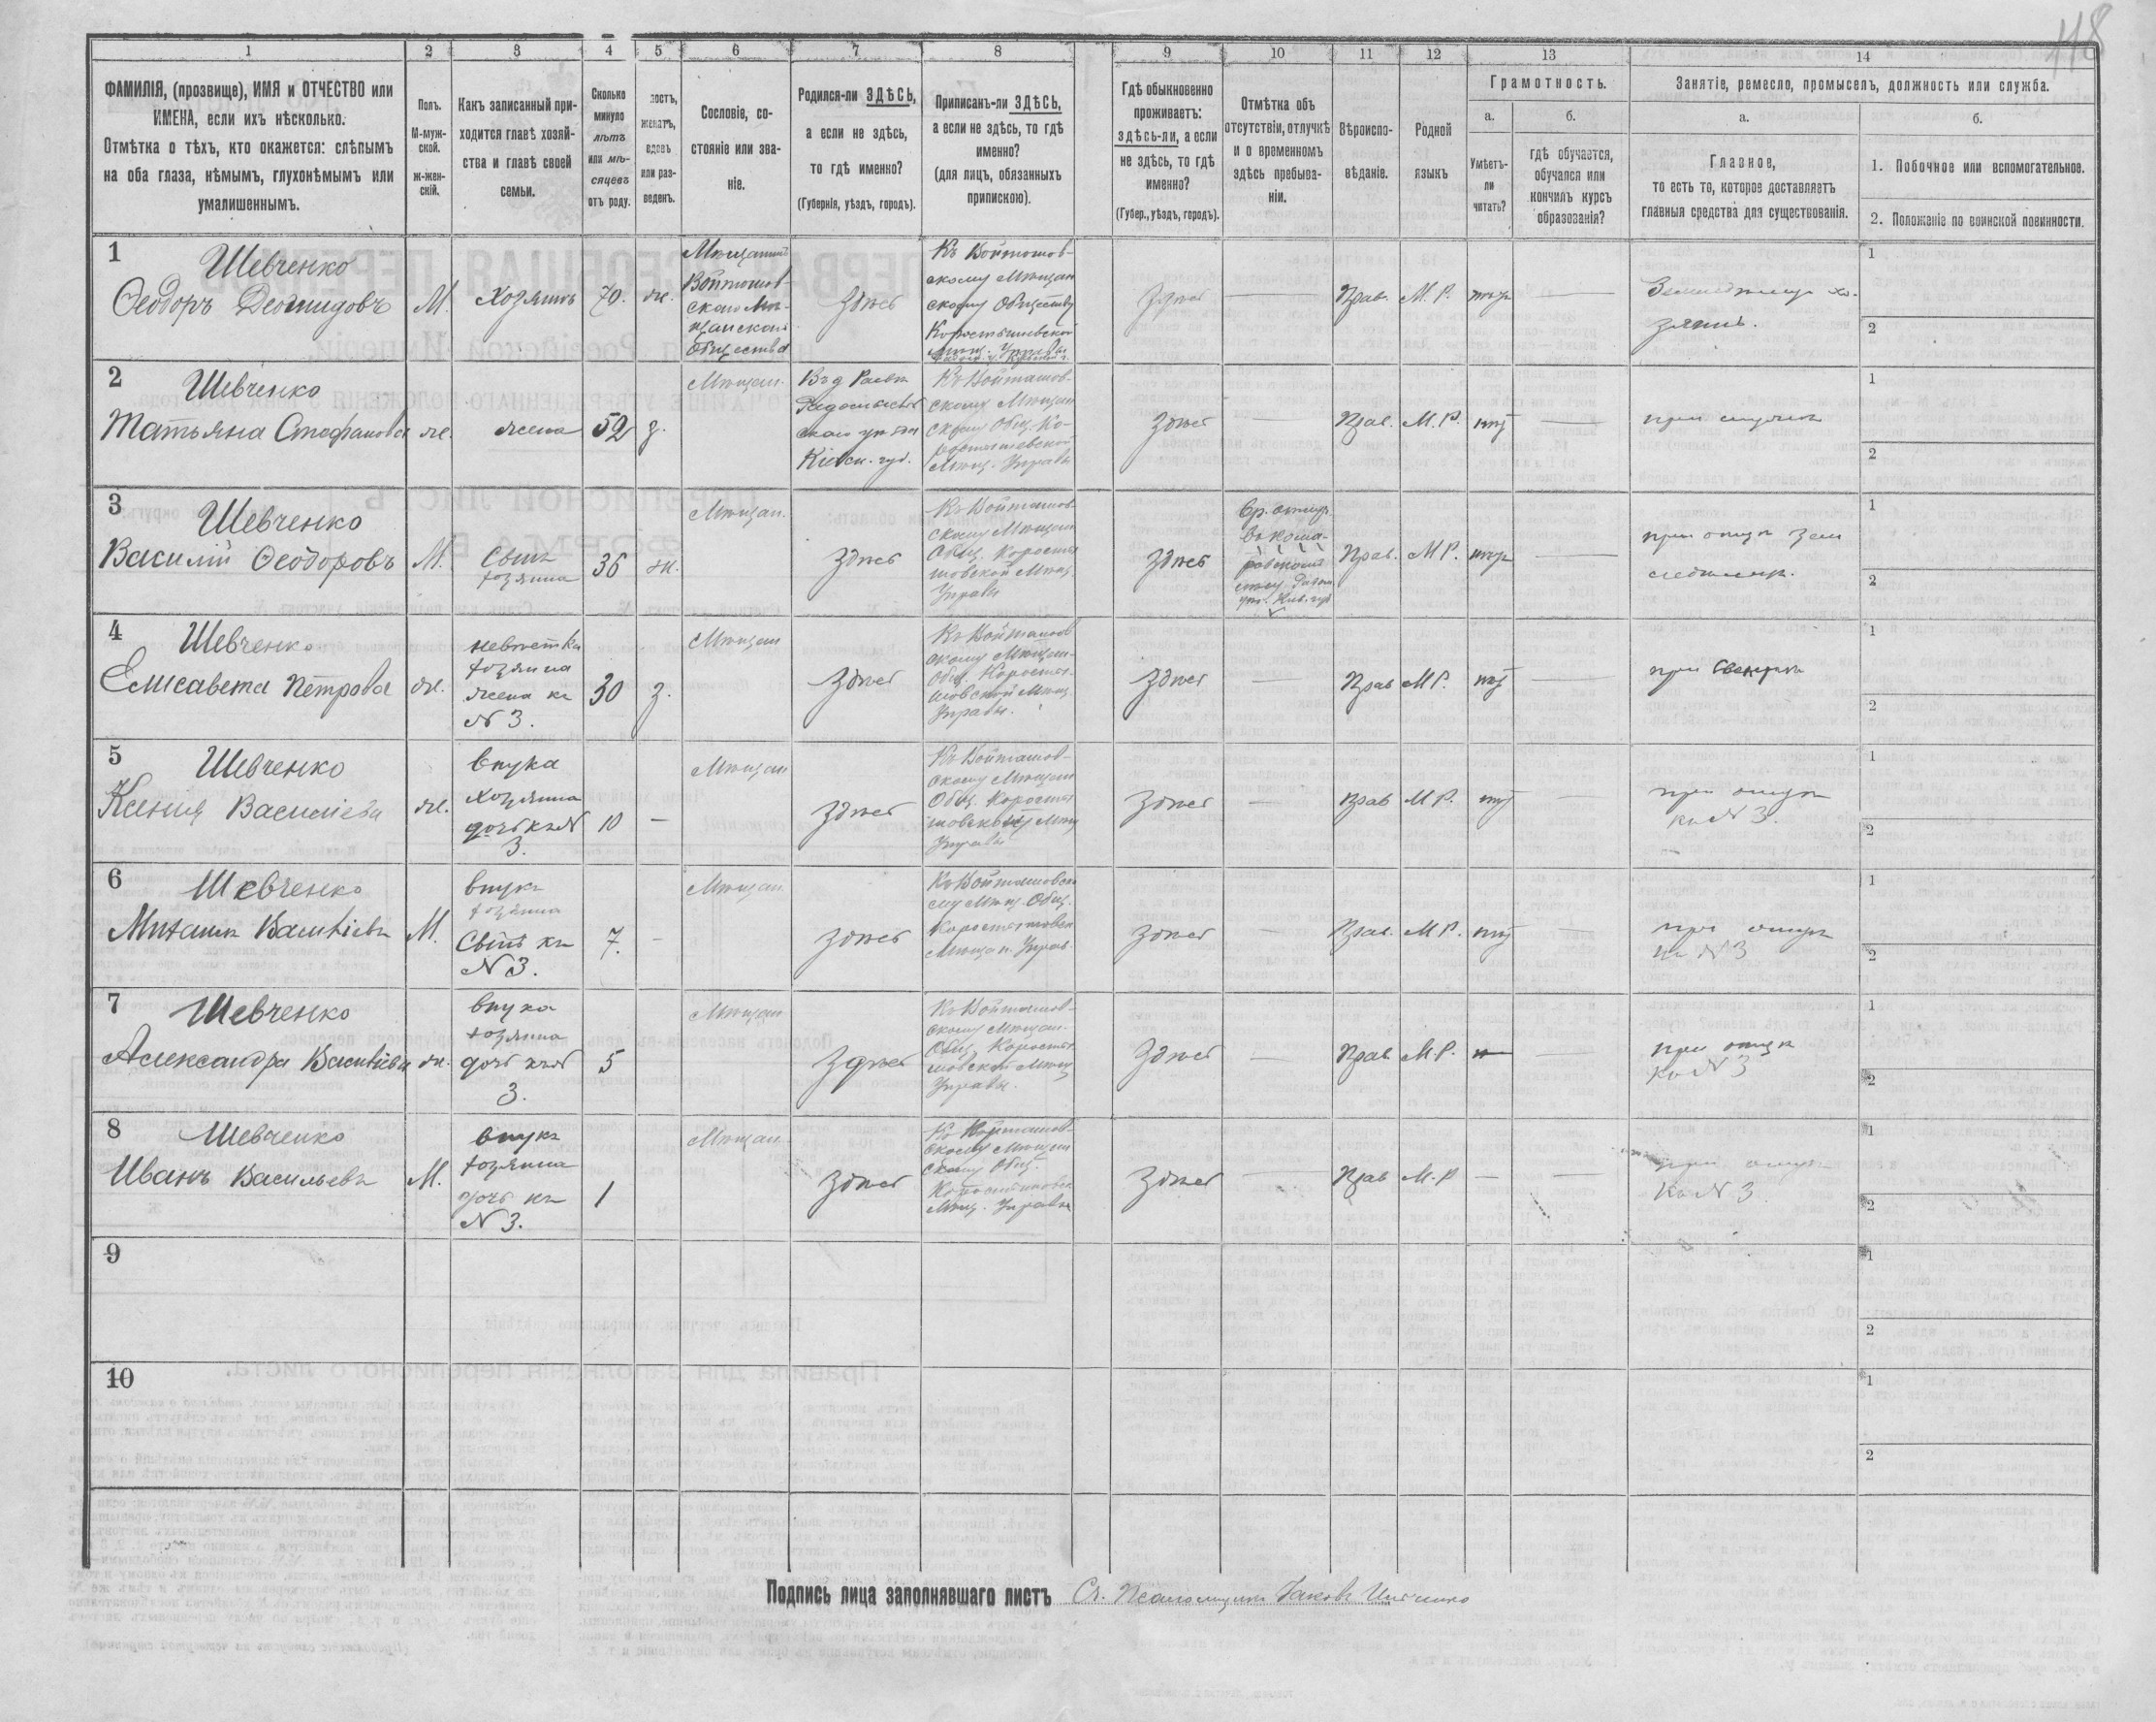 118
1
2
3
4
5
6
7
8
9
10
11
12
13
14
ФАМИЛІЯ, (прозвище), ИМЯ и ОТЧЕСТВО или
ИМЕНА, если ихъ нѣсколько.
Отмѣтка о тѣхъ, кто окажется: слѣпымъ
на оба глаза, нѣмымъ, глухонѣмымъ или
умалишеннымъ.
Полъ.
М-муж-
ской.
ж-жен-
скій.
Какъ записанный при-
ходится главѣ хозяй-
ства и главѣ своей
семьи.
Сколько
минуло
лѣтъ
или мѣ-
сяцевъ
отъ роду.
лостъ,
женатъ,
вдовъ
или раз-
веденъ.
Сословіе, со-
стояніе или зва-
ніе.
Родился-ли ЗДѢСЬ,
а если не здѣсь,
то гдѣ именно?
(Губернія, уѣздъ, городъ).
Приписанъ-ли ЗДѢСЬ,
а если не здѣсь, то гдѣ
именно?
(для лицъ, обязанныхъ
припискою).
Гдѣ обыкновенно
проживаетъ:
здѣсь-ли, а если
не здѣсь, то гдѣ
именно?
(Губер., уѣздъ, городъ).
Отмѣтка объ
отсутствіи, отлучкѣ
и о временномъ
здѣсь пребыва-
ніи.
Вѣроиспо-
вѣданіе.
Родной
языкъ
Грамотность.
а.
Умѣетъ-
ли
читать?
б.
гдѣ обучается,
обучался или
кончилъ курсъ
образованія?
Занятіе, ремесло, промыселъ, должность или служба.
а.
Главное,
то есть то, которое доставляетъ
главныя средства для существованія.
б.
1. Побочное или вспомогательное.
2. Положеніе по воинской повинности.
1
Шевченко
Ѳеодоръ Деомидовъ
М.
Хозяинъ
70.
ж.
Мѣщанинъ
Войташов-
скаго Мѣ-
щанскаго
Общества
Здѣсь
Къ Войташов-
скому Мѣщан
скому Обществу
Коростышевской
Мѣщ. Управы
Здѣсь
Прав.
М. Р.
хо-
зяинъ.
1
2
2
Шевченко
Татьяна Стефанова
ж.
жена
52
з.
Мѣщан.
Въ д Раевкѣ
Радомысль
скаго уѣзда
Кіевск. губ.
Къ Войташов-
скому Мѣщан
скому Общ. Ко-
ростышевской
Мѣщ. Управы
Здѣсь
Прав.
М. Р.
при мужѣ
1
2
3
Шевченко
Василій Ѳеодоровъ
М.
Сынъ
хозяина
36
ж.
Мѣщан.
Здѣсь
Къ Войташов-
скому Мѣщан
Общ. Корост
шовской Мѣщ.
Управы
Здѣсь
Прав.
М Р.
при отцѣ
1
2
4
Шевченко
Елисавета Петрова
ж.
невѣстка
хозяина
жена къ
N 3.
30
з.
Мѣщан
Здѣсь
Къ Войташов
скому Мѣщан-
Общ. Корост.
шовской Мѣщ
Управы.
Здѣсь
Прав
М Р.
при Свекрѣ
1
2
5
Шевченко
Ксенія Васильева
ж.
внука
хозяина
дочь къ N
3.
10
Мѣщан
Здѣсь
Къ Войташов-
скому Мѣщан
Общ. Корост
шовской Мѣщ
Управы
Здѣсь
Прав
М Р.
при отцѣ
къ N 3.
1
2
6
Шевченко
Михаилъ Васильевъ
М.
внукъ
хозяина
Сынъ къ
N 3.
7.
Мѣщан.
Здѣсь
Къ Войташовско
му Мѣщ. Общ.
Мѣщан. Управ.
Здѣсь
Прав.
М Р.
при отцѣ
къ N 3
1
2
7
Шевченко
Александра Васильева
ж.
внука
хозяина
дочь къ N
3.
5
Мѣщан
Здѣсь
Къ Войташов-
скому Мѣщан-
Общ. Корост
шовской Мѣщ
Управы.
Здѣсь
Прав.
М Р.
при отцѣ
Къ N 3
1
2
8
Шевченко
Иванъ Васильевъ
М.
внукъ
хозяина
дочь къ
N 3.
1
Мѣщан.
Здѣсь
Къ Войташов-
скому Мѣщан
скому Общ.
Мѣщ. Управы
Здѣсь
Прав
М. Р
при отцѣ
Къ N 3
1
2
9
1
2
10
1
2
Подпись лица заполнявшаго листъ